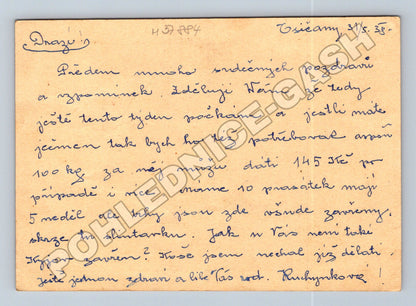 Drazí! H 37884 Všičany 31/5. 38.
Předem mnoho srdečných pozdravů
a vzpomínek. Sděluji Vám, že tedy
ještě tento týden počkáme a jestli máte
ječmen tak bych ho též potřeboval aspoň
100 kg za něj můžu dáti 145 Kč po
případě i více. máme 10 prasátek mají
5 neděl ale trhy jsou zde všude zavřeny
skrze tu slintavku. Jak u Vás není také
Kypov zavřen? Koše jsem nechal již dělati.
Ještě jednou zdraví a líbe Vás rod. Ruchynkova!
POHLEDNICE-GASH